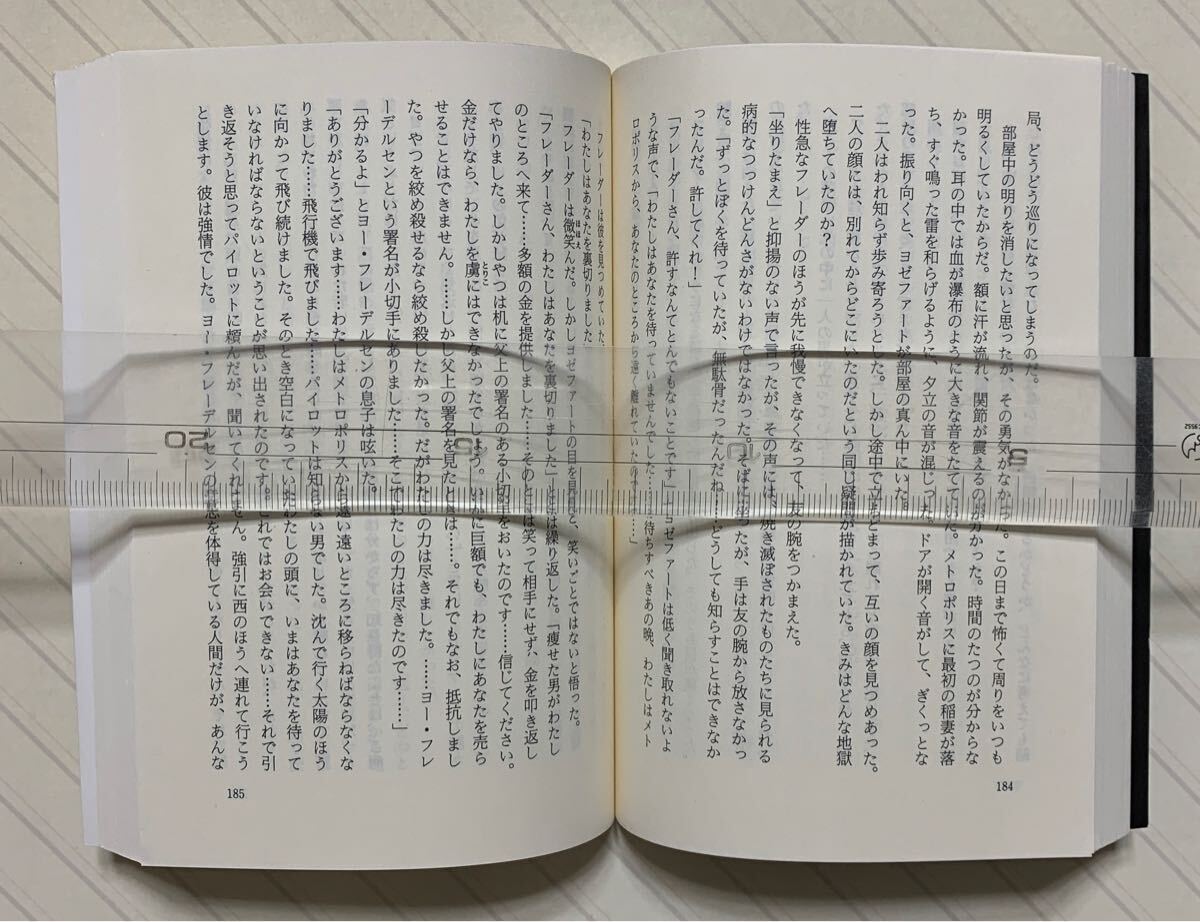 局、どうどう巡りになってしまうのだ。
部屋中の明りを消したいと思ったが、その勇気がなかった。この日まで怖くて周りをいつも
明るくしていたからだ。額に汗が流れ、関節が震えるのが分かった。時間のたつのが分からな
かった。耳の中では血が瀑布のように大きな音をたてていた。メトロポリスに最初の稲妻が落
ち、すぐ鳴った雷を和らげるように、夕立の音が混じった。ドアが開く音がして、ぎくっとな
った。振り向くと、ヨゼファートが部屋の真ん中にいた。
二人はわれ知らず歩み寄ろうとした。しかし途中で立ちどまって、互いの顔を見つめあった。
二人の顔には、別れてからどこにいたのだという同じ疑問が描かれていた。きみはどんな地獄
へ堕ちていたのか?
性急なフレーダーのほうが先に我慢できなくなって、友の腕をつかまえた。
「坐りたまえ」と抑揚のない声で言ったが、その声には、焼き滅ぼされたものたちに見られる
病的なつっけんどんさがないわけではなかった。そばに坐ったが、手は友の腕から放さなかっ
た。「ずっとぼくを待っていたが、無駄骨だったんだね……どうしても知らすことはできなか
ったんだ。許してくれ!」
「フレーダーさん、許すなんてとんでもないことです」ヨゼファートは低く聞き取れないよ
うな声で、「わたしはあなたを待っていませんでした……待ちすべきあの晩、わたしはメト
ロポリスから、あなたのところから遠く離れていたのです……」
184
フレーダーは彼を見つめていた。
「わたしはあなたを裏切りました
フレーダーは微笑んだ。しかしヨゼファートの目を見ると、笑いごとではないと悟った。
ほほえ
「フレーダーさん、わたしはあなたを裏切りました」と は繰り返した。「痩せた男がわたし
のところへ来て……多額の金を提供しました……そのときは笑って相手にせず、金を叩き返し
てやりました。しかしやつは机に父上の署名のある小切手をおいたのです……信じてください。
金だけなら、わたしを虜にはできなかったでしょう。いかに巨額でも、わたしにあなたを売ら
とりこ
せることはできません。……しかし父上の署名を見たときは……。それでもなお、抵抗しまし
た。やつを絞め殺せるなら絞め殺したかった。だがわたしの力は尽きました。……ヨー・フレ
ーデルセンという署名が小切手にありました……そこでわたしの力は尽きたのです……」
「分かるよ」とヨー・フレーデルセンの息子は呟いた。
「ありがとうございます……わたしはメトロポリスから遠い遠いところに移らねばならなくな
りました……飛行機で飛びました……パイロットは知らない男でした。沈んで行く太陽のほう
に向かって飛び続けました。そのとき空白になっていたわたしの頭に、いまはあなたを待って
いなければならないということが思い出されたのです。これではお会いできない……それで引
き返そうと思ってパイロットに頼んだが、聞いてくれません。強引に西のほうへ連れて行こう
とします。彼は強情でした。ヨー・フレーデルセンの意志を体得している人間だけが、あんな
185
20
15
10
5